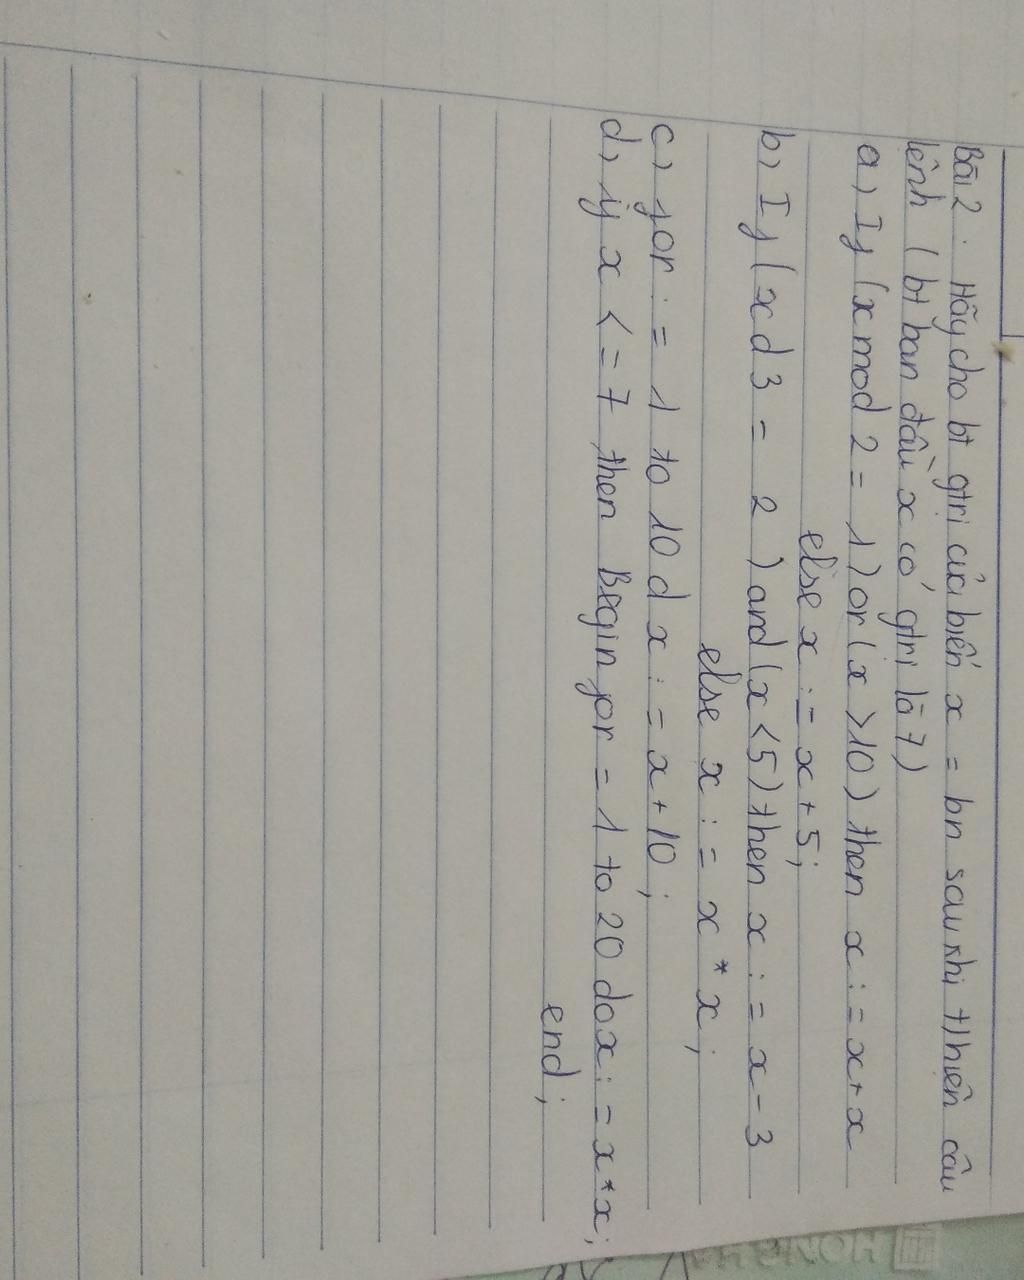 Bài 2. Hãy cho bt gtri của biến x = bn sau khi t/hiện câu
lệnh (bt ban đầu x có gtri là 7)
a, If (x mod 2 = 1) or (x > 10) then x := x + x
else x := x + 5;
b, If (x d 3 = 2) and (x < 5) then x := x - 3
else x := x * x;
c, for := 1 to 10 d x := x + 10;
d, if x <= 7 then Begin for = 1 to 20 do x := x * x;
end;
HONG HA